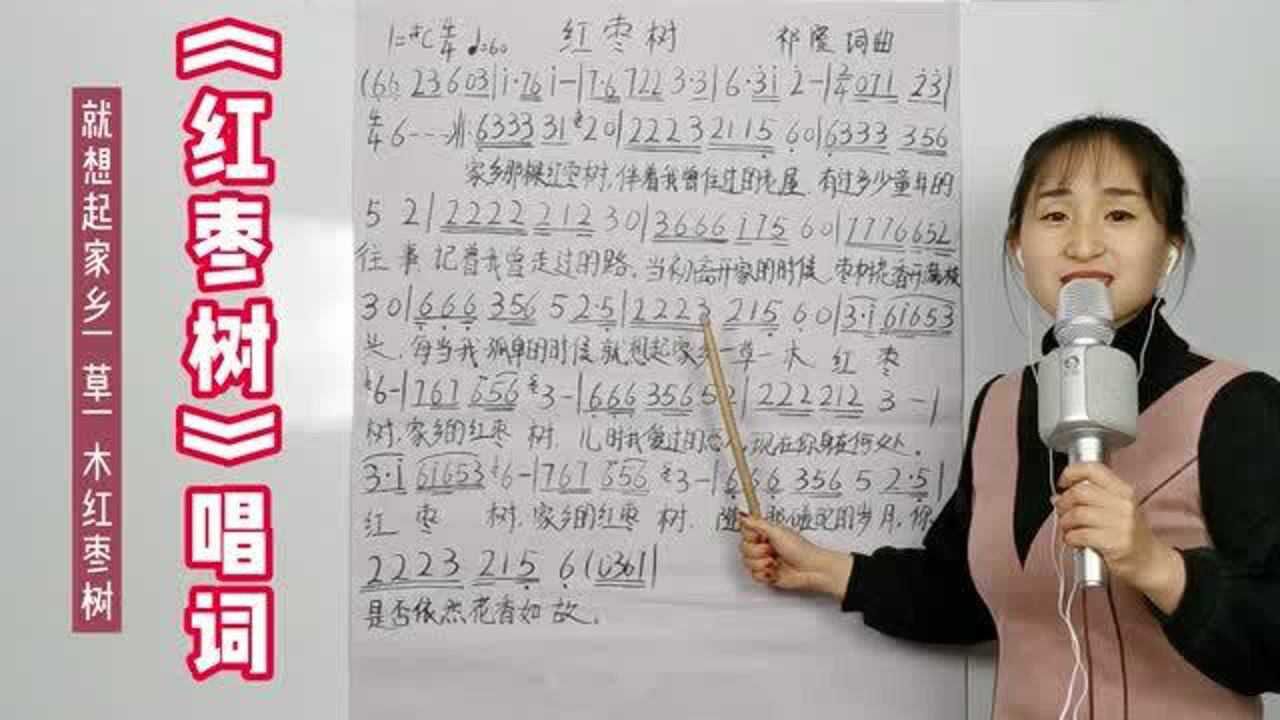 《红枣树》唱词
就想起家乡一草一木红枣树
1=#C 4/4 ♩=60 红枣树 祁隆 词曲
(66 23 603|i·76 i-|7·6 722 3·3|6·3i 2-|2/4 071 23|
4/4 6---:|| 6333 31 20|2223 2115 60|6333 356
家乡那棵红枣树,伴着我曾住过的老屋 有过多少童年的
5 2|2222 212 30|3666 175 60|7776 652
往事 记着我曾走过的路。当初离开家的时候 枣树花香开满枝
30|666 356 5 2·5|2223 215 60|3·i 61653
头,每当我孤单的时候 就想起家乡一草一木 红枣
6-|767 656 3-|666 356 52|222 212 3-|
树,家乡的红枣树,儿时我爱过的恋人,现在你身在何处。
3·i 61653 6-|767 656 3-|666 356 5 2·5|
红枣树,家乡的红枣树,随 的岁月,你
2223 215 6(0361|
是否依然花香如故。